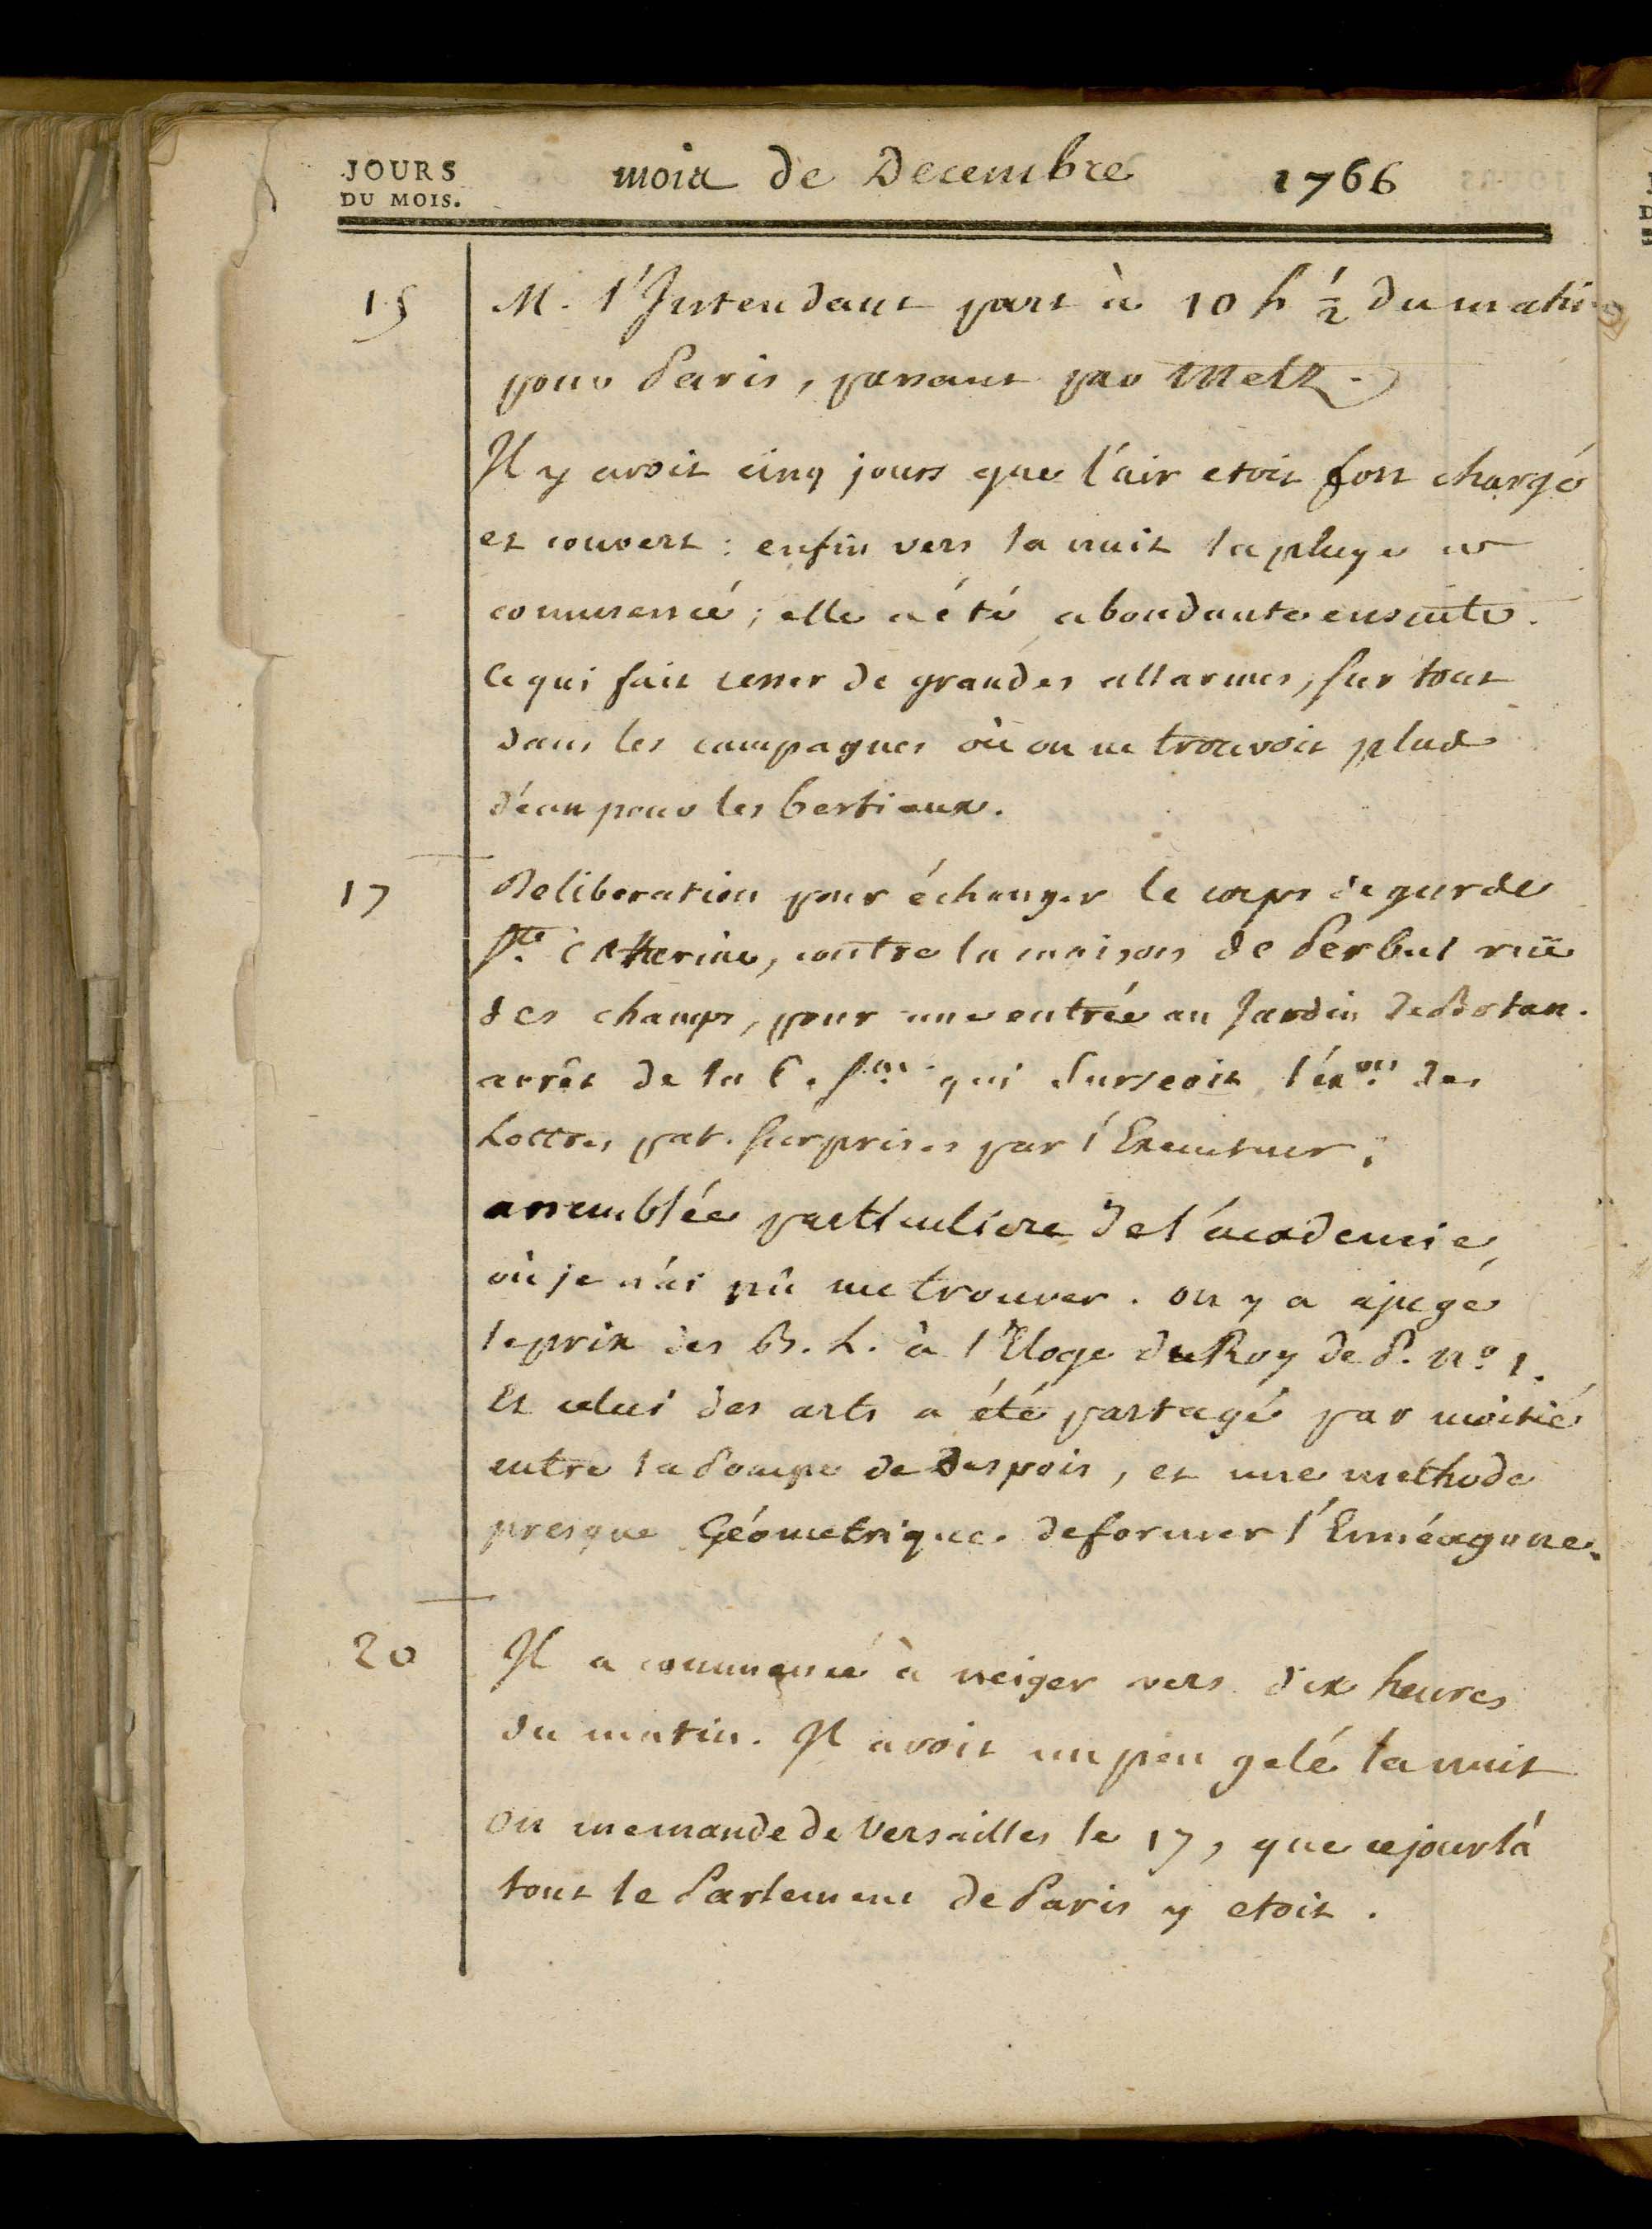 JOURS
DU MOIS.
mois de Decembre 1766
15 M. l'Intendant part à 10 h ½ du matin
pour Paris, passant par Metz.
Il y avoit cinq jours que l'air etoit fort chargé
et couvert : enfin vers la nuit la pluye a
commencé ; elle a été abondante ensuite.
Ce qui fait cesser de grandes allarmes, sur tout
dans les campagnes où on ne trouvoit plus
d'eau pour les bestiaux.
17 Deliberation pour échanger le corps de garde
Ste Catherine, contre la maison de Perbal rüe
des champs, pour une entrée au Jardin de Botan.
arrêt de la C. Sne qui surseoit l'éxon des
Lettres pat. surprises par l'Executeur ;
assemblée particuliere de l'académie,
où je n'ai pû me trouver. on y a ajugé
le prix des B. L. à l'Eloge du Roy de P. n° 1.
Et celui des arts a été partagé par moitié
entre la Pompe de Despois, et une methode
presque Géometrique de former l'Ennéagone.
20 Il a commencé à neiger vers dix heures
du matin. Il avoit un peu gelé la nuit
On me mande de Versailles le 17, que ce jour là
tout le Parlement de Paris y etoit.